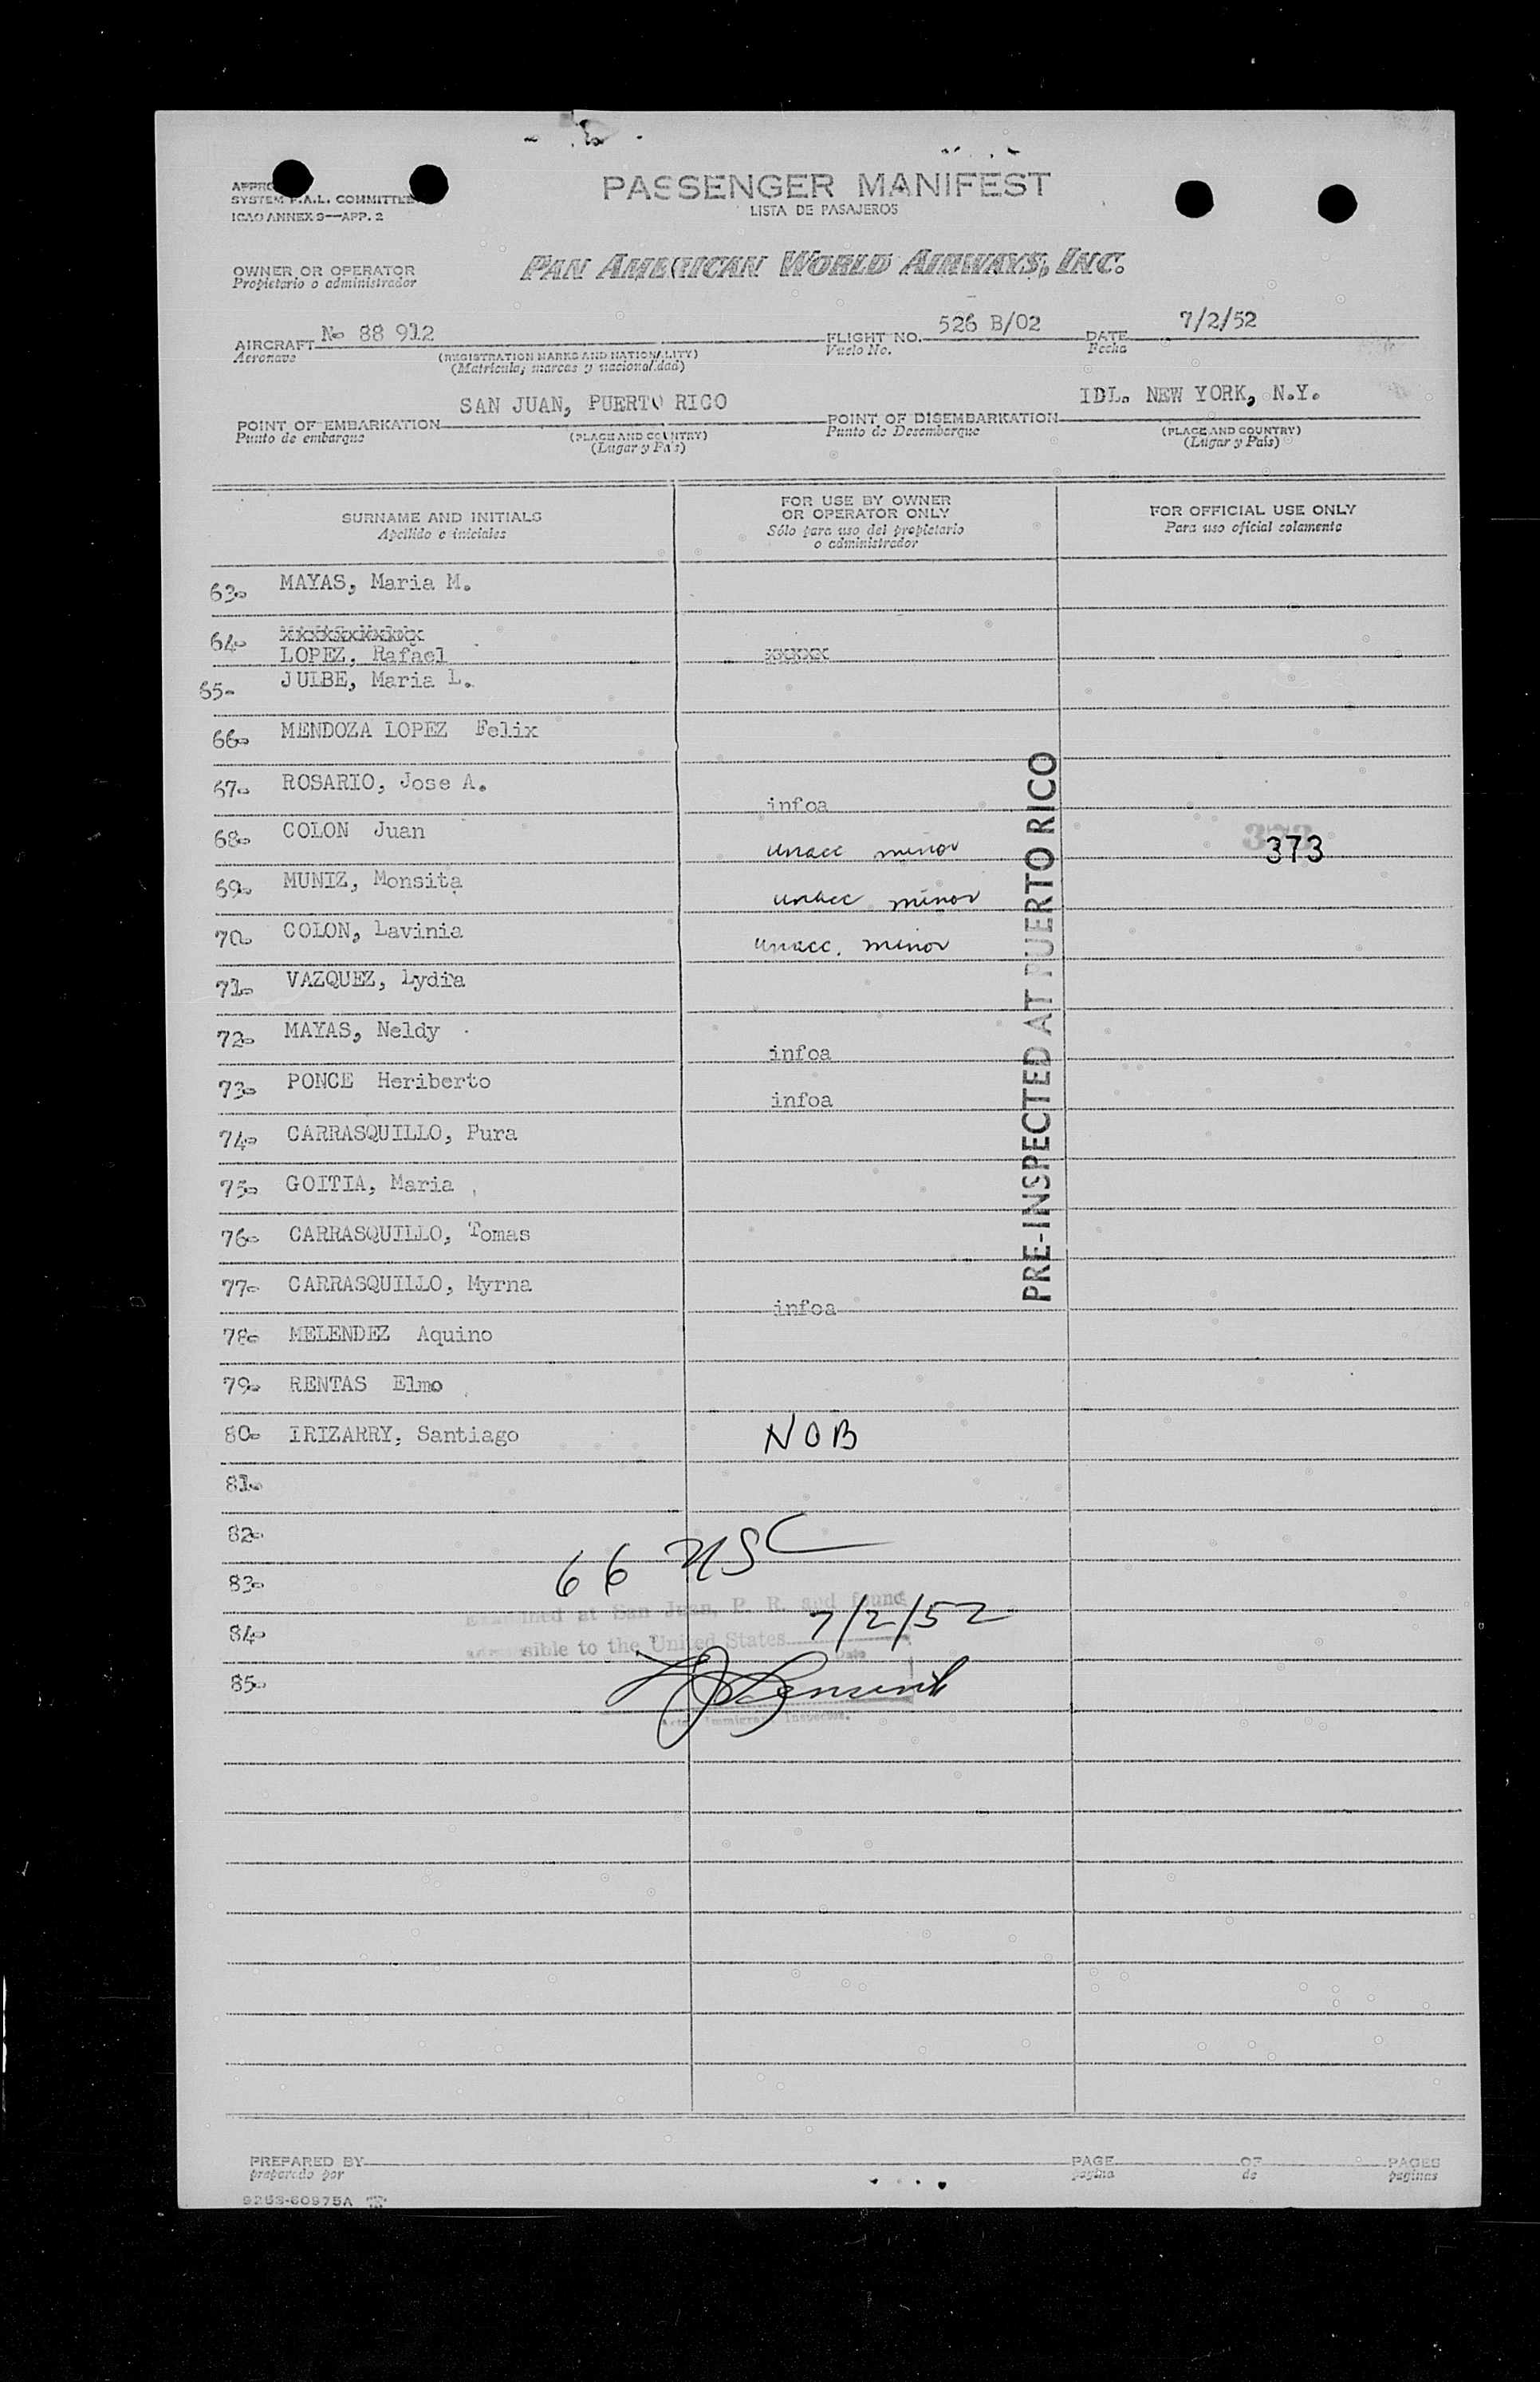 SYSTEM F.A.L. COMMITTEE
ICAO ANNEX 9—APP. 2
PASSENGER MANIFEST
LISTA DE PASAJEROS
OWNER OR OPERATOR
Propietario o administrador
PAN AMERICAN WORLD AIRWAYS, INC.
AIRCRAFT No 88 912 FLIGHT NO. 526 B/02 DATE 7/2/52
Aeronave (REGISTRATION MARKS AND NATIONALITY) Vuelo No. Fecha
(Matricula; marcas y nacionalidad)
POINT OF EMBARKATION SAN JUAN, PUERTO RICO POINT OF DISEMBARKATION IDL. NEW YORK, N.Y.
Punto de embarque (PLACE AND COUNTRY) Punto de Desembarque (PLACE AND COUNTRY)
(Lugar y País) (Lugar y País)
SURNAME AND INITIALS FOR USE BY OWNER OR OPERATOR ONLY FOR OFFICIAL USE ONLY
Apellido e iniciales Sólo para uso del propietario o administrador Para uso oficial solamente
63- MAYAS, Maria M.
64- xxxxxxxxxxx
LOPEZ, Rafael xxxxx
65- JULBE, Maria L.
66- MENDOZA LOPEZ Felix
67- ROSARIO, Jose A. infoa
68- COLON Juan unacc minor 373
69- MUNIZ, Monsita unacc minor
70- COLON, Lavinia unacc. minor
71- VAZQUEZ, Lydia
72- MAYAS, Neldy infoa
73- PONCE Heriberto infoa
74- CARRASQUILLO, Pura
75- GOITIA, Maria
76- CARRASQUILLO, Tomas
77- CARRASQUILLO, Myrna infoa
78- MELENDEZ Aquino
79- RENTAS Elmo
80- IRIZARRY, Santiago NOB
PRE-INSPECTED AT PUERTO RICO
81-
82-
66 USC
83-
Examined at San Juan, P. R. and found
84- admissible to the United States 7/2/52
Date
85-
Immigrant Inspector.
PREPARED BY PAGE OF PAGES
preparado por pagina de paginas
9263-60975A